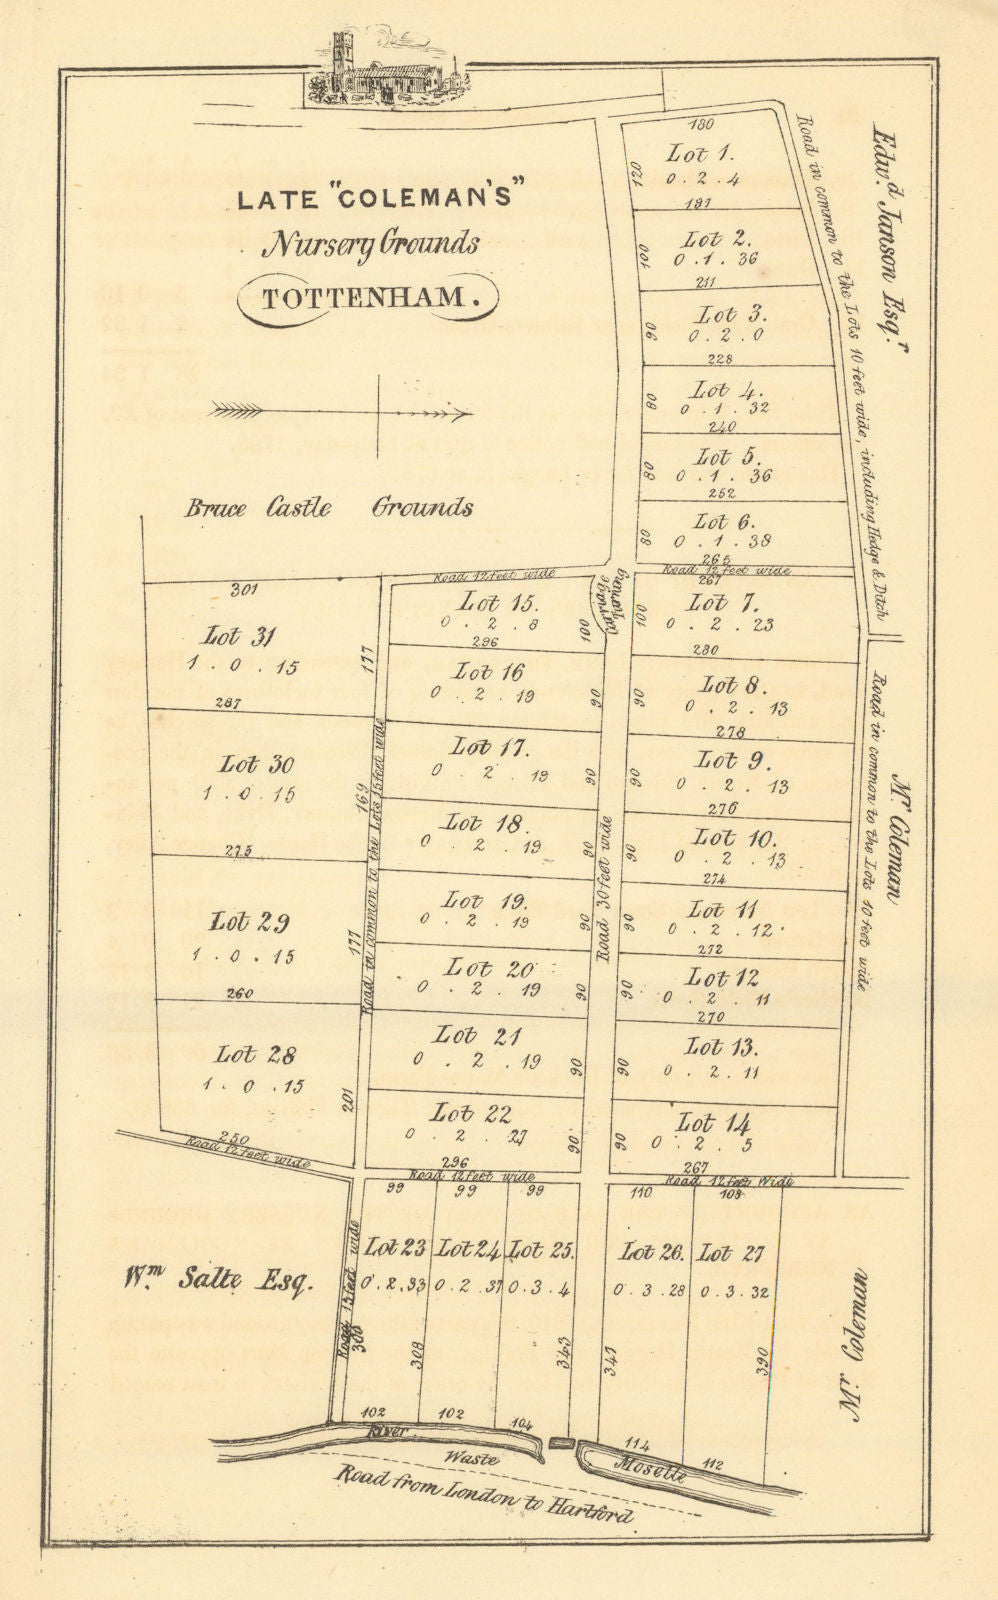 LATE "COLEMAN'S"
Nursery Grounds
TOTTENHAM.
Bruce Castle Grounds
Edwd. Janson Esqr.
Road in common to the Lots 10 feet wide, including Hedge & Ditch
180
Lot 1.
120
0 . 2 . 4
197
Lot 2.
100
0 . 1 . 36
211
Lot 3.
90
0 . 2 . 0
228
Lot 4.
80
0 . 1 . 32
240
Lot 5.
80
0 . 1 . 36
252
Lot 6.
80
0 . 1 . 38
265
Road 12 feet wide
267
Carriage Turning
Lot 7.
100
0 . 2 . 23
280
Lot 8.
90
0 . 2 . 13
278
Lot 9.
90
0 . 2 . 13
276
Lot 10.
90
0 . 2 . 13
274
Lot 11
90
0 . 2 . 12
272
Lot 12
90
0 . 2 . 11
270
Lot 13.
90
0 . 2 . 11
Lot 14
90
0 . 2 . 5
267
Road 12 feet Wide
Mr. Coleman
Road in common to the Lots 10 feet wide
Road 30 feet wide
Road 12 feet wide
Lot 15.
0 . 2 . 8
100
296
Lot 16
0 . 2 . 19
90
Lot 17.
0 . 2 . 19
90
Lot 18.
0 . 2 . 19
90
Lot 19.
0 . 2 . 19
90
Lot 20
0 . 2 . 19
90
Lot 21
0 . 2 . 19
90
Lot 22
0 . 2 . 27
90
296
Road 12 feet wide
301
Lot 31
1 . 0 . 15
177
287
Lot 30
1 . 0 . 15
169
275
Lot 29
1 . 0 . 15
177
260
Lot 28
1 . 0 . 15
201
250
Road 12 feet wide
Road in common to the Lots 15 feet wide
Wm. Salte Esq.
Road 15 feet wide
300
99
Lot 23
0 . 2 . 33
308
102
99
Lot 24
0 . 2 . 37
102
99
Lot 25.
0 . 3 . 4
343
104
110
Lot 26.
0 . 3 . 28
347
114
108
Lot 27
0 . 3 . 32
390
112
Mr. Coleman
River
Moselle
Waste
Road from London to Hartford